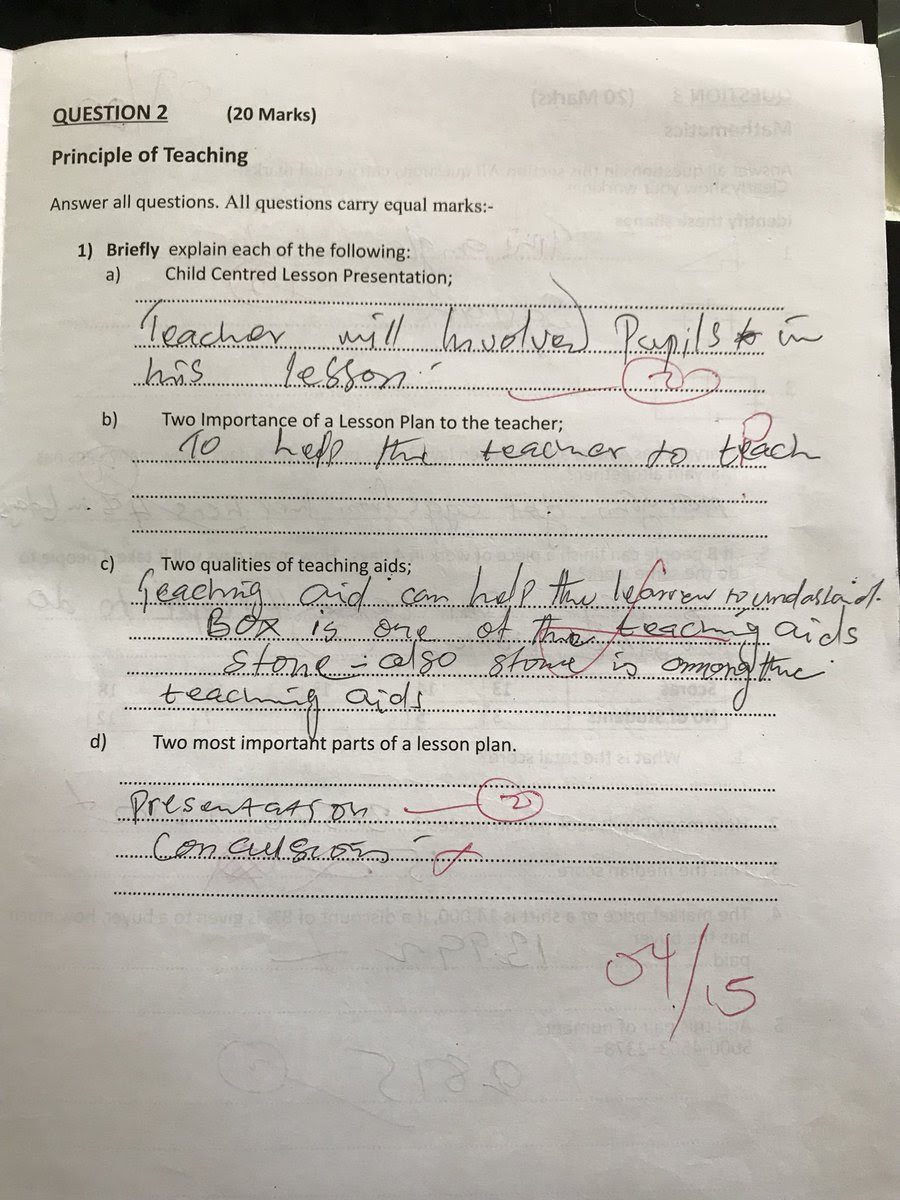 QUESTION 2 (20 Marks)
Principle of Teaching
Answer all questions. All questions carry equal marks:-
1) Briefly explain each of the following:
a) Child Centred Lesson Presentation;
Teacher will Involved Pupils in
his lesson.
2
b) Two Importance of a Lesson Plan to the teacher;
To help the teacher to teach
c) Two qualities of teaching aids;
Teaching aid can help the
Box is one of the teaching aids
Stone - also stone is among the
teaching aids
d) Two most important parts of a lesson plan.
Presentation 2
Conculsion
04/15